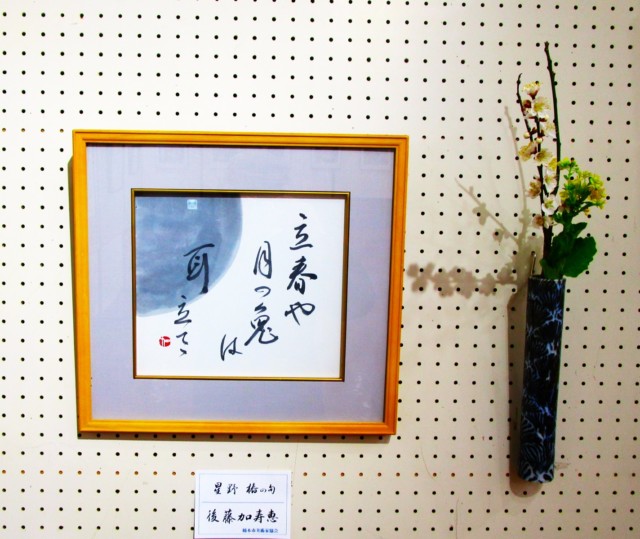 立春や
月の兎
は
耳立てゝ
星野 椿の句
後藤加寿恵